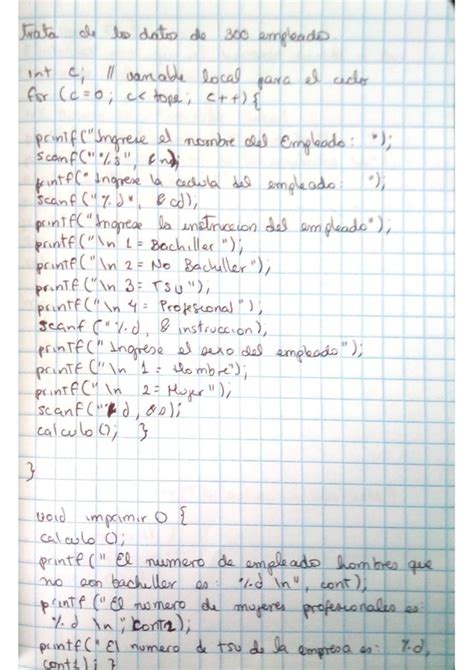 trata de los datos de 300 empleado
int c; // variable local para el ciclo
for (c=0; c<tope; c++){
printf("Ingrese el nombre del Empleado: ");
scanf("%s", &n);
printf("Ingrese la cedula del empleado: ");
scanf("%d", &cd);
printf("Ingrese la instruccion del empleado");
printf("\n 1= Bachiller");
printf("\n 2= No Bachiller");
printf("\n 3= TSU"),
printf("\n 4= Profesional");
scanf ("%d, & instruccion),
printf(" Ingrese el sexo del empleado");
printf("\n 1 = Hombre");
printf("\n 2= Mujer");
scanf("%d, &s);
calculo(); }
}
void imprimir () {
calculo ();
printf(" El numero de empleado hombres que
no son bachiller es: %d \n", cont);
printf ("El numero de mujeres profesionales es:
%d \n", cont2);
printf(" El numero de tsu de la empresa es: %d,
cont3); }